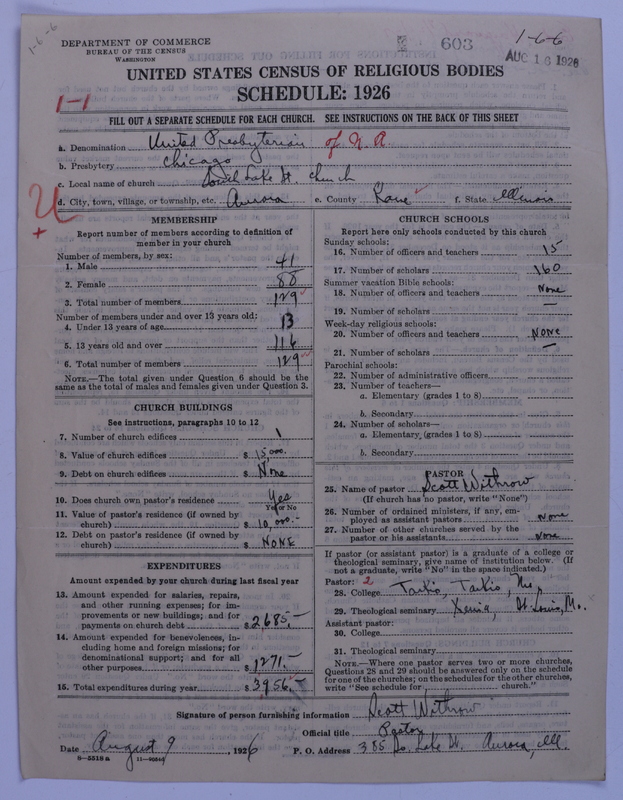 1-6-6
DEPARTMENT OF COMMERCE
BUREAU OF THE CENSUS
WASHINGTON
603
1-6-6
AUG 16 1926
UNITED STATES CENSUS OF RELIGIOUS BODIES
SCHEDULE: 1926
1-1
FILL OUT A SEPARATE SCHEDULE FOR EACH CHURCH. SEE INSTRUCTIONS ON THE BACK OF THIS SHEET
a. Denomination United Presbyterian of N. A
b. Presbytery Chicago
c. Local name of church South Lake St. Church
d. City, town, village, or township, etc. Aurora e. County Kane f. State Illinois
MEMBERSHIP
Report number of members according to definition of
member in your church
Number of members, by sex:
1. Male 41
2. Female 88
3. Total number of members 129
Number of members under and over 13 years old:
4. Under 13 years of age 13
5. 13 years old and over 116
6. Total number of members 129
NOTE.—The total given under Question 6 should be
same as the total of males and females given under Question 3.
CHURCH BUILDINGS
See instructions, paragraphs 10 to 12
7. Number of church edifices 1
8. Value of church edifices $ 15,000.
9. Debt on church edifices $ None
10. Does church own pastor's residence Yes
Yes or No
11. Value of pastor's residence (if owned by
church) $ 10,000.-
12. Debt on pastor's residence (if owned by
church) $ NONE
EXPENDITURES
Amount expended by your church during last fiscal year
13. Amount expended for salaries, repairs,
and other running expenses; for im-
provements or new buildings; and for
payments on church debt $ 2685.-
14. Amount expended for benevolences, in-
cluding home and foreign missions; for
denominational support; and for all
other purposes $ 1271.-
15. Total expenditures during year $ 3956.-
CHURCH SCHOOLS
Report here only schools conducted by this church
Sunday schools:
16. Number of officers and teachers 15
17. Number of scholars 160
Summer vacation Bible schools:
18. Number of officers and teachers None
19. Number of scholars —
Week-day religious schools:
20. Number of officers and teachers NONE
21. Number of scholars —
Parochial schools:
22. Number of administrative officers
23. Number of teachers—
a. Elementary (grades 1 to 8)
b. Secondary
24. Number of scholars—
a. Elementary (grades 1 to 8)
b. Secondary
PASTOR
25. Name of pastor Scott Withrow
(If church has no pastor, write "None")
26. Number of ordained ministers, if any, em-
ployed as assistant pastors None
27. Number of other churches served by the
pastor or his assistants None
If pastor (or assistant pastor) is a graduate of a college or
theological seminary, give name of institution below. (If
not a graduate, write "No" in the space indicated.)
Pastor: 2
28. College Tarkio, Tarkio, Mo,
29. Theological seminary Xenia, St. Louis, Mo.
Assistant pastor:
30. College
31. Theological seminary
NOTE.—Where one pastor serves two or more churches,
Questions 28 and 29 should be answered only on the schedule
for one of the churches; on the schedules for the other churches,
write "See schedule for church."
Signature of person furnishing information Scott Withrow
Official title Pastor
Date August 9, 1926 P. O. Address 385 So. Lake St. Aurora, Ill.
8-5518a